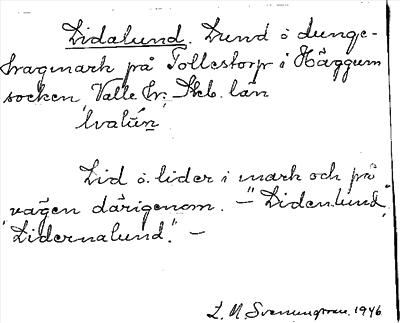 Lidalund. Lund o dunge-
hragmark på Tollestorp i Häggum
socken, Valle hr. Skb. län
Lid o. lider i mark och på
vägen därigenom. – "Liden lund",
"Lidernalund." –
L. M. Svenungsson. 1946